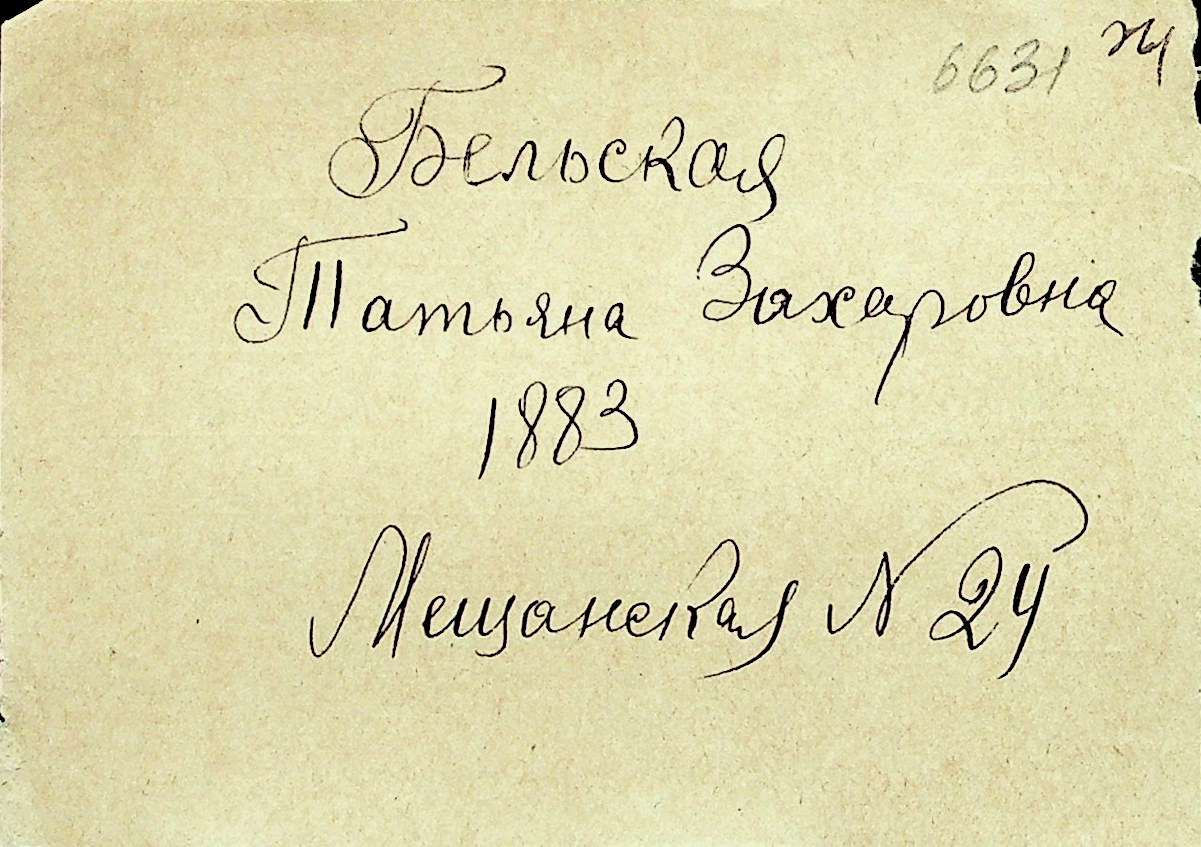 6631
Бельская
Татьяна Захаровна
1883
Мещанская N 24